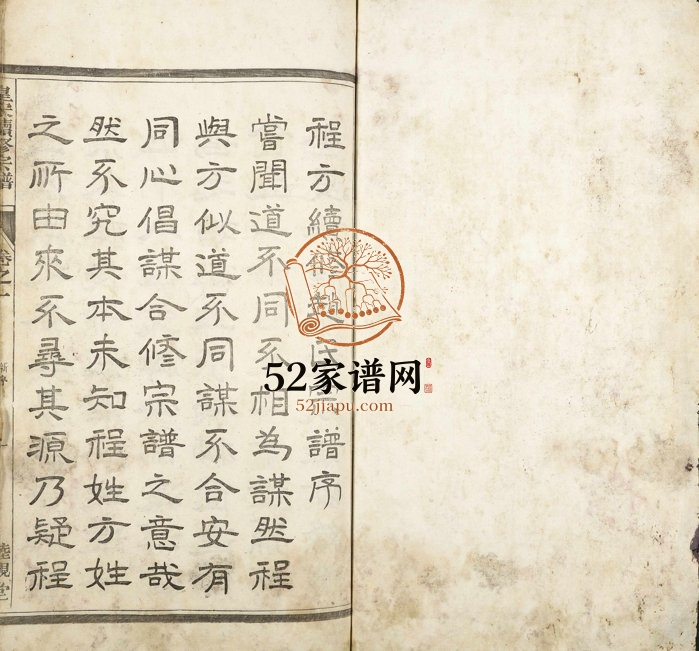 程方續修氏譜序
嘗聞道不同不相為謀然程
與方似道不同謀不合安有
同心倡謀合修宗譜之意哉
然不究其本未知程姓方姓
之所由來不尋其源乃疑程
續修宗譜
卷之一
睦親堂
52家谱网
52jiapu.com